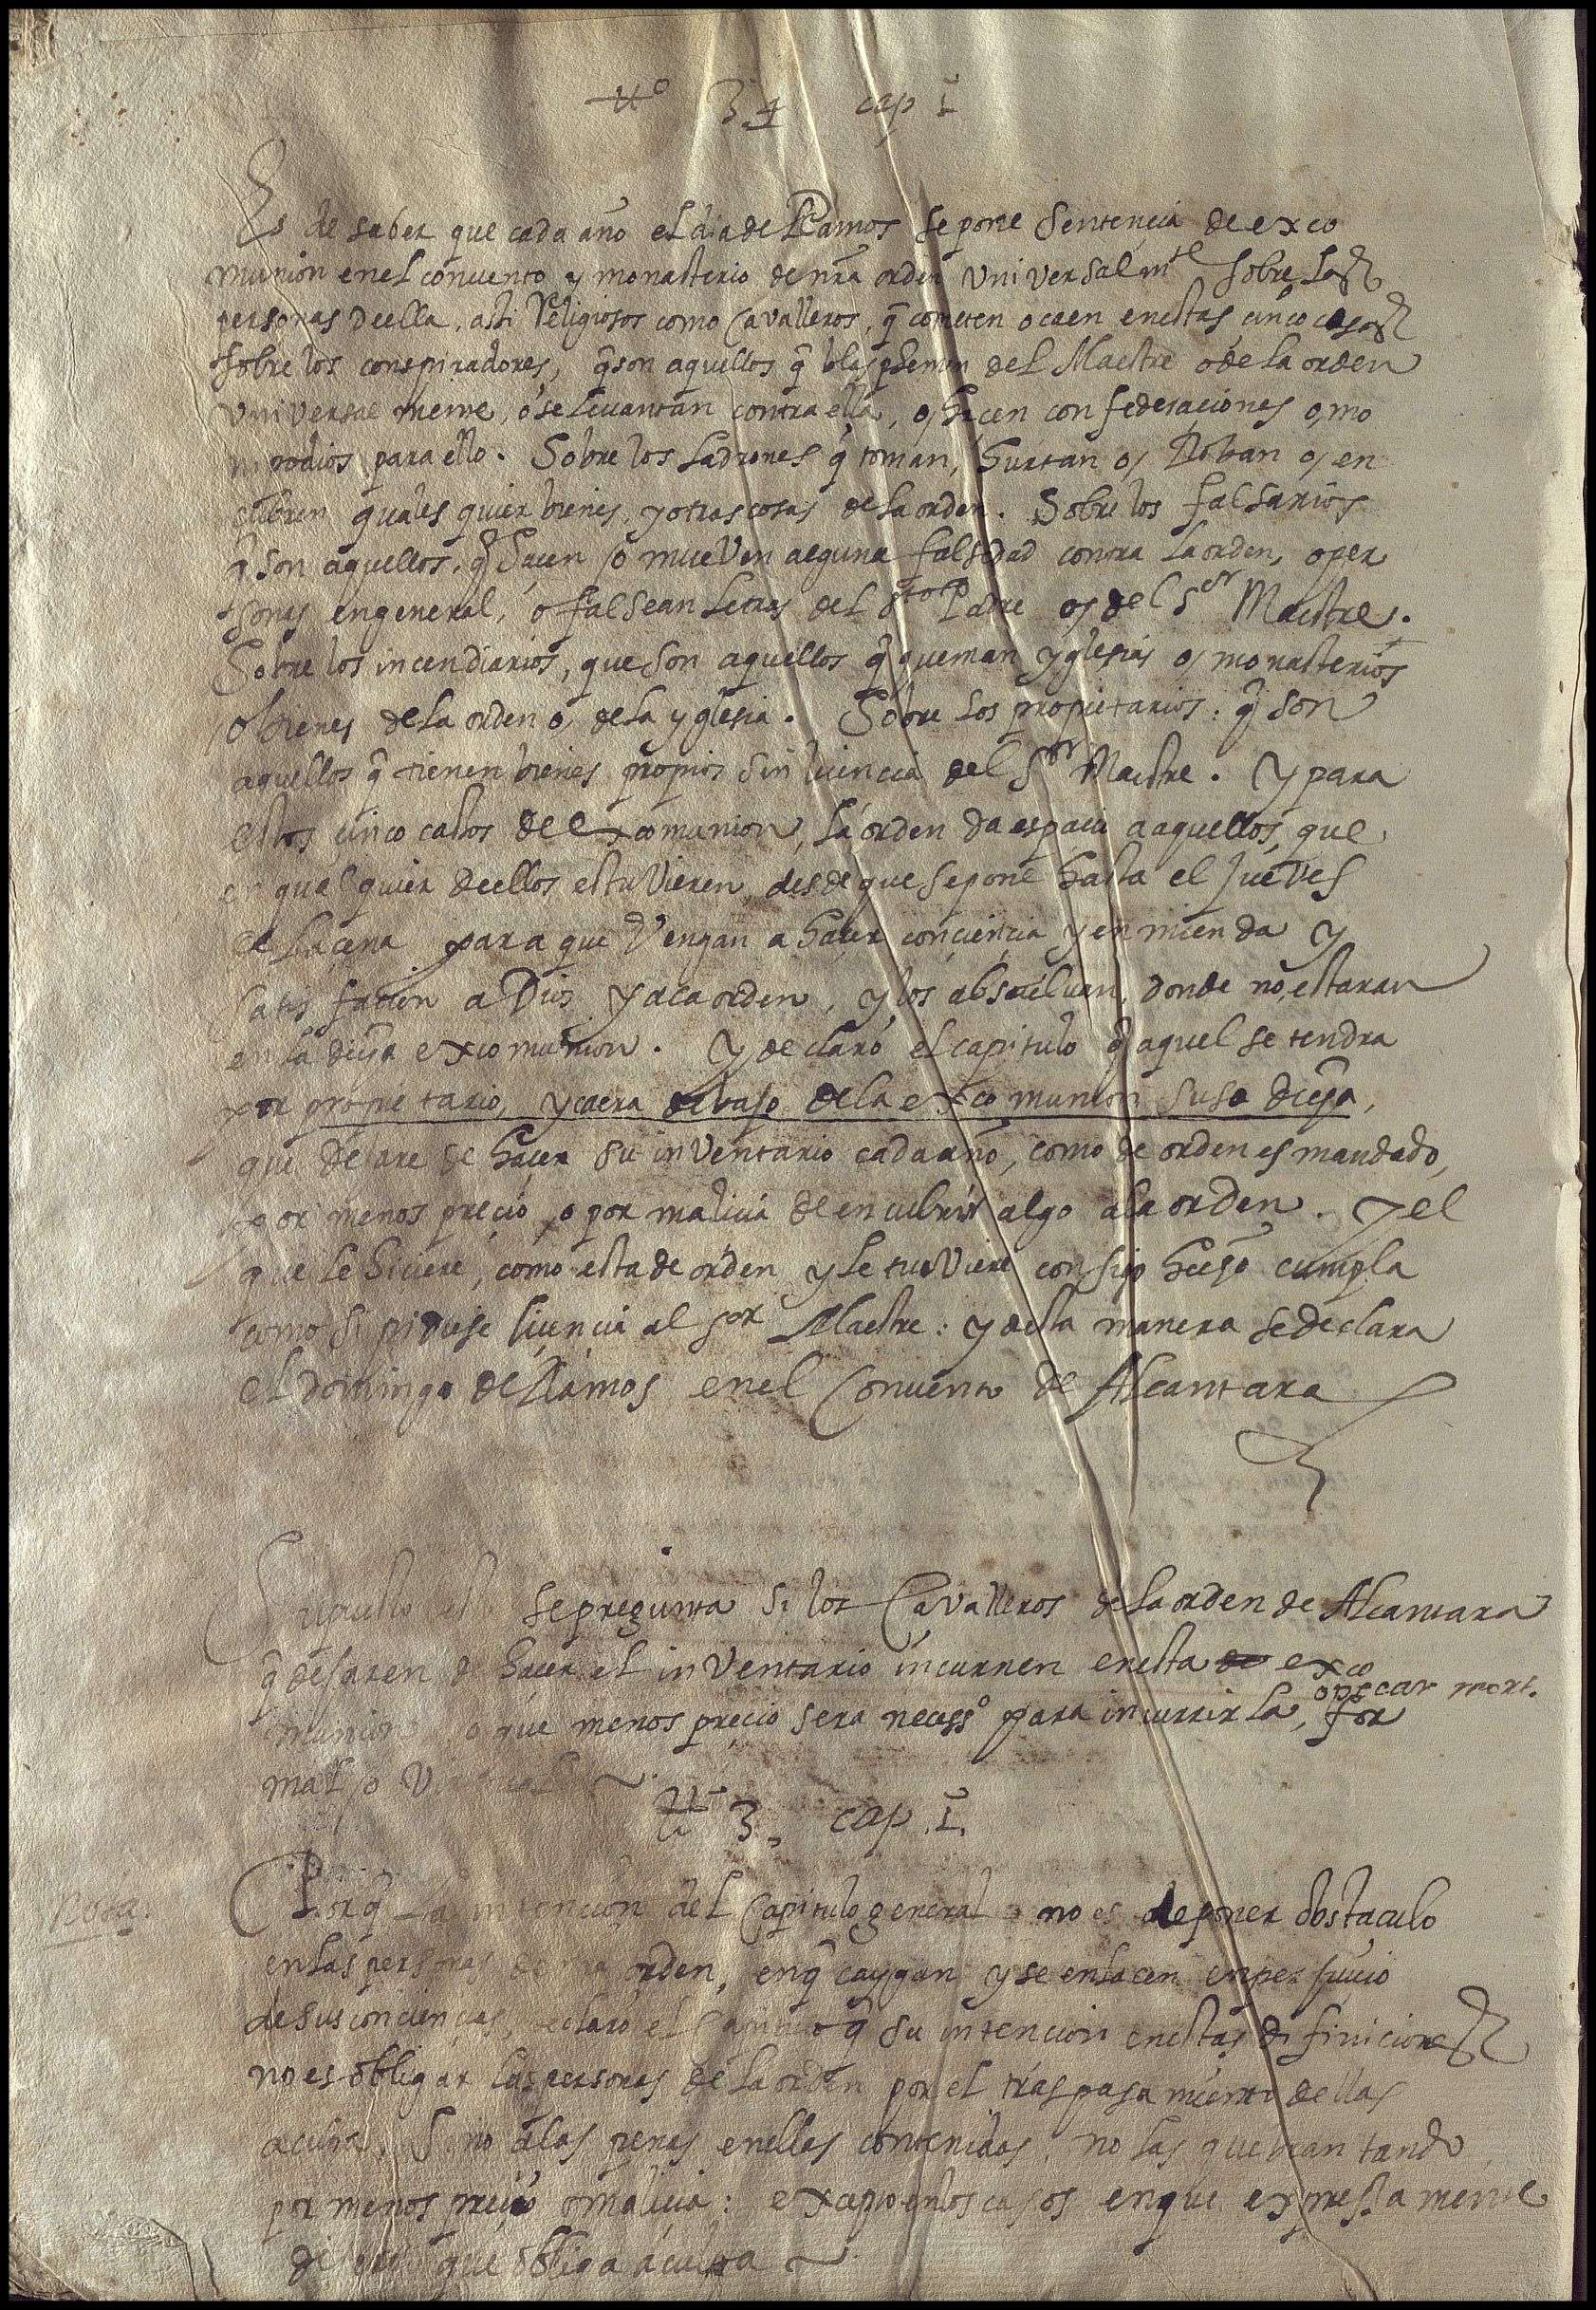 tto 34 cap I
Es de saber que cada año el dia de Ramos se pone sentencia de exco
munion en el convento y monasterio de nra orden universalmte sobre las
personas de ella, assi Religiosos como Cavalleros, q̃ cometen o caen en estas cinco cosas
sobre los conspiradores, q̃ son aquellos q̃ blasphemen del Maestre o de la orden
universalmente, o se levantan contra ella, o hacen confederaciones o mo
nipodios para ello. Sobre los Ladrones q̃ toman, hurtan o Roban o en
cubren quales quier bienes, y otras cosas de la orden. Sobre los falsarios
q̃ son aquellos, q̃ hacen o mueven alguna falsedad contra la orden, o per
sonas en general, o falsean Letras del sto Padre o del sor Maestre.
Sobre los incendiarios, que son aquellos q̃ queman yglesias o monasterios
o bienes de la orden o de la yglesia. Sobre los propietarios: q̃ son
aquellos q̃ tienen bienes propios sin licencia del sor Maestre. Y para
estos cinco casos de excomunion, la orden da espacio a aquellos, que
en qualquier de ellos estuvieren desde que se pone hasta el Jueves
de la cena para que vengan a hacer conciencia y enmienda y
satisfacion a Dios y a la orden, y los absuelvan, donde no, estaran
en la dicha excomunion. Y declaró el capitulo q̃ aquel se tendra
por propietario, y caera debajo de la excomunion susodicha,
que dejare de hacer su inventario cada año, como de orden es mandado,
por menosprecio, o por malicia de encubrir algo a la orden. Y el
que le hiciere, como esta de orden y le tuviere consigo hecho cumpla
como si pidiese licencia al sor Maestre: y desta manera se declara
el domingo de Ramos en el Convento de Alcantara
se pregunta si los Cavalleros de la orden de Alcantara
q̃ dejaren d hacer el inventario incurren en esta exco
o pecar mort.
munion o que menosprecio sera necesso para incurrirla, for
mal o
tto 3, cap. I.
Nota.
Porq̃ la intencion del Capitulo general no es de poner obstaculo
en las personas de nra orden, en q̃ caygan y se enlacen en perjuicio
de sus conciencias, declaró el Capitulo q̃ su intencion en estas difiniciones
no es obligar las personas de la orden por el traspasamiento dellas
a culpa, sino a las penas en ellas contenidas, no las quebrantando
por menosprecio o malicia: excepto en los casos en que expressamente
que obliga a culpa